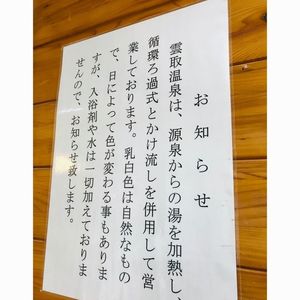 お知らせ
雲取温泉は、源泉からの湯を加熱し、
循環ろ過式とかけ流しを併用して営
業しております。乳白色は自然なもの
で、日によって色が変わる事もありま
すが、入浴剤や水は一切加えておりま
せんので、お知らせ致します。